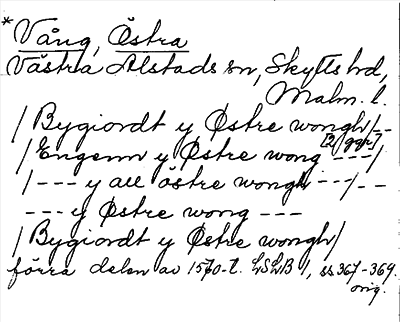 *Vång, Östra
Västra Alstads sn, Skytts hd,
Malm. l.
/ Bygiordt y Østre wongh/--
[2 ggr]
/ Engenn y Østre wong ---/
/--- y all östre wongh ---/--
--- y Østre wong ---
/ Bygiordt y Østre wongh/
förra delen av 1570-t. LSLB 1, ss 367-369.
orig.